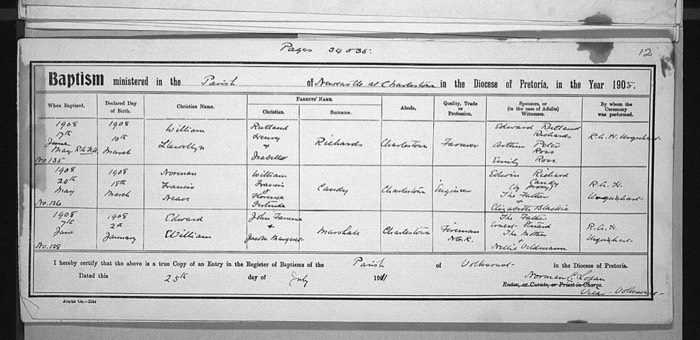 Pages 34 & 35.
12
Baptism ministered in the Parish of Newcastle at Charlestown in the Diocese of Pretoria, in the Year 1908.
When Baptised. Declared Day of Birth. Christian Name. PARENTS' NAME. Christian. Surname. Abode. Quality, Trade or Profession. Sponsors, or (in the case of Adults) Witnesses. By whom the Ceremony was performed.
1908 1908 William Rutland Edward Rutland
7th 10th Llewellyn Henry Richards Charlestown Farmer Richards R.G.H.
June March & Arthur Peter
May Isabella Ross
No. 135 Emily Ross.
1908 1908 Norman William Edwin Richard
20th 18th Francis Francis Candy Charlestown Candy R.G.H.
May March & Florence The Father
No. 136 Gertrude & Elizabeth Blackie
1908 1908 Edward John The Father
7th 2nd William & Marshall Charlestown Foreman R.G.H.
June January The Mother
No. 138 N.G.R. & Nellie
I hereby certify that the above is a true Copy of an Entry in the Register of Baptisms of the Parish of Volksrust in the Diocese of Pretoria.
Dated this 25th day of July 1911 Norman C. Logan
Rector, or Curate, or Priest-in-Charge.
Vicar Volksrust